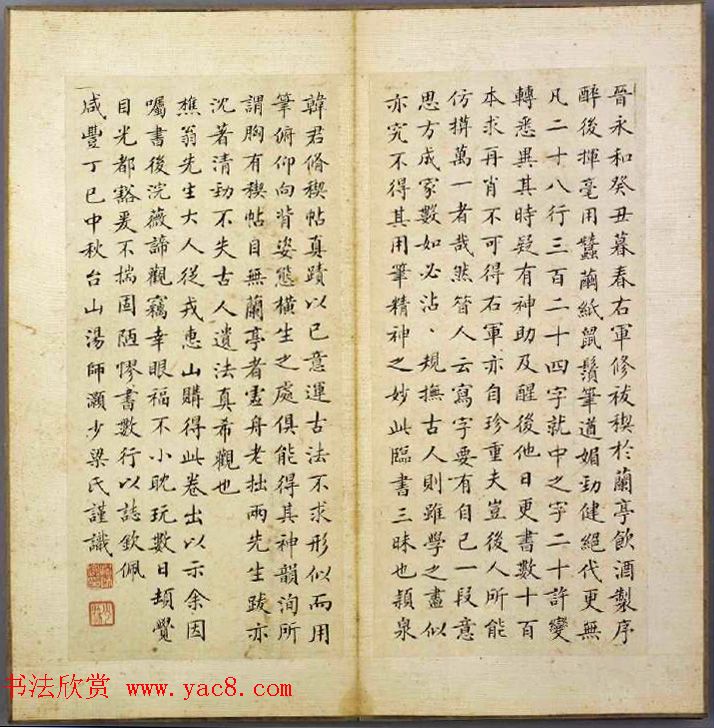 晉永和癸丑暮春右軍修祓禊於蘭亭飲酒製序
醉後揮毫用蠶繭紙鼠鬚筆遒媚勁健絕代更無
凡二十八行三百二十四字就中之字二十許變
轉悉異其時疑有神助及醒後他日更書數十百
本求再肖不可得右軍亦自珍重夫豈後人所能
仿摸萬一者哉然昝人云寫字要有自己一段意
思方成家數如必沾、規撫古人則雖學之盡似
亦究不得其用筆精神之妙此臨書三昧也穎泉
韓君脩稧帖真蹟以己意運古法不求形似而用
筆俯仰向背姿態橫生之處俱能得其神韻洵所
謂胸有稧帖目無蘭亭者虛舟老拙兩先生跋亦
沈著清勁不失古人遺法真希觀也
樵翁先生大人從戎惠山購得此卷出以示余因
囑書後浣薇諦觀竊幸眼福不小耽玩數日頓覺
目光都豁爰不揣固陋謬書數行以誌欽佩
咸豐丁巳中秋台山湯師灝少梁氏謹識
书法欣赏 www.yac8.com